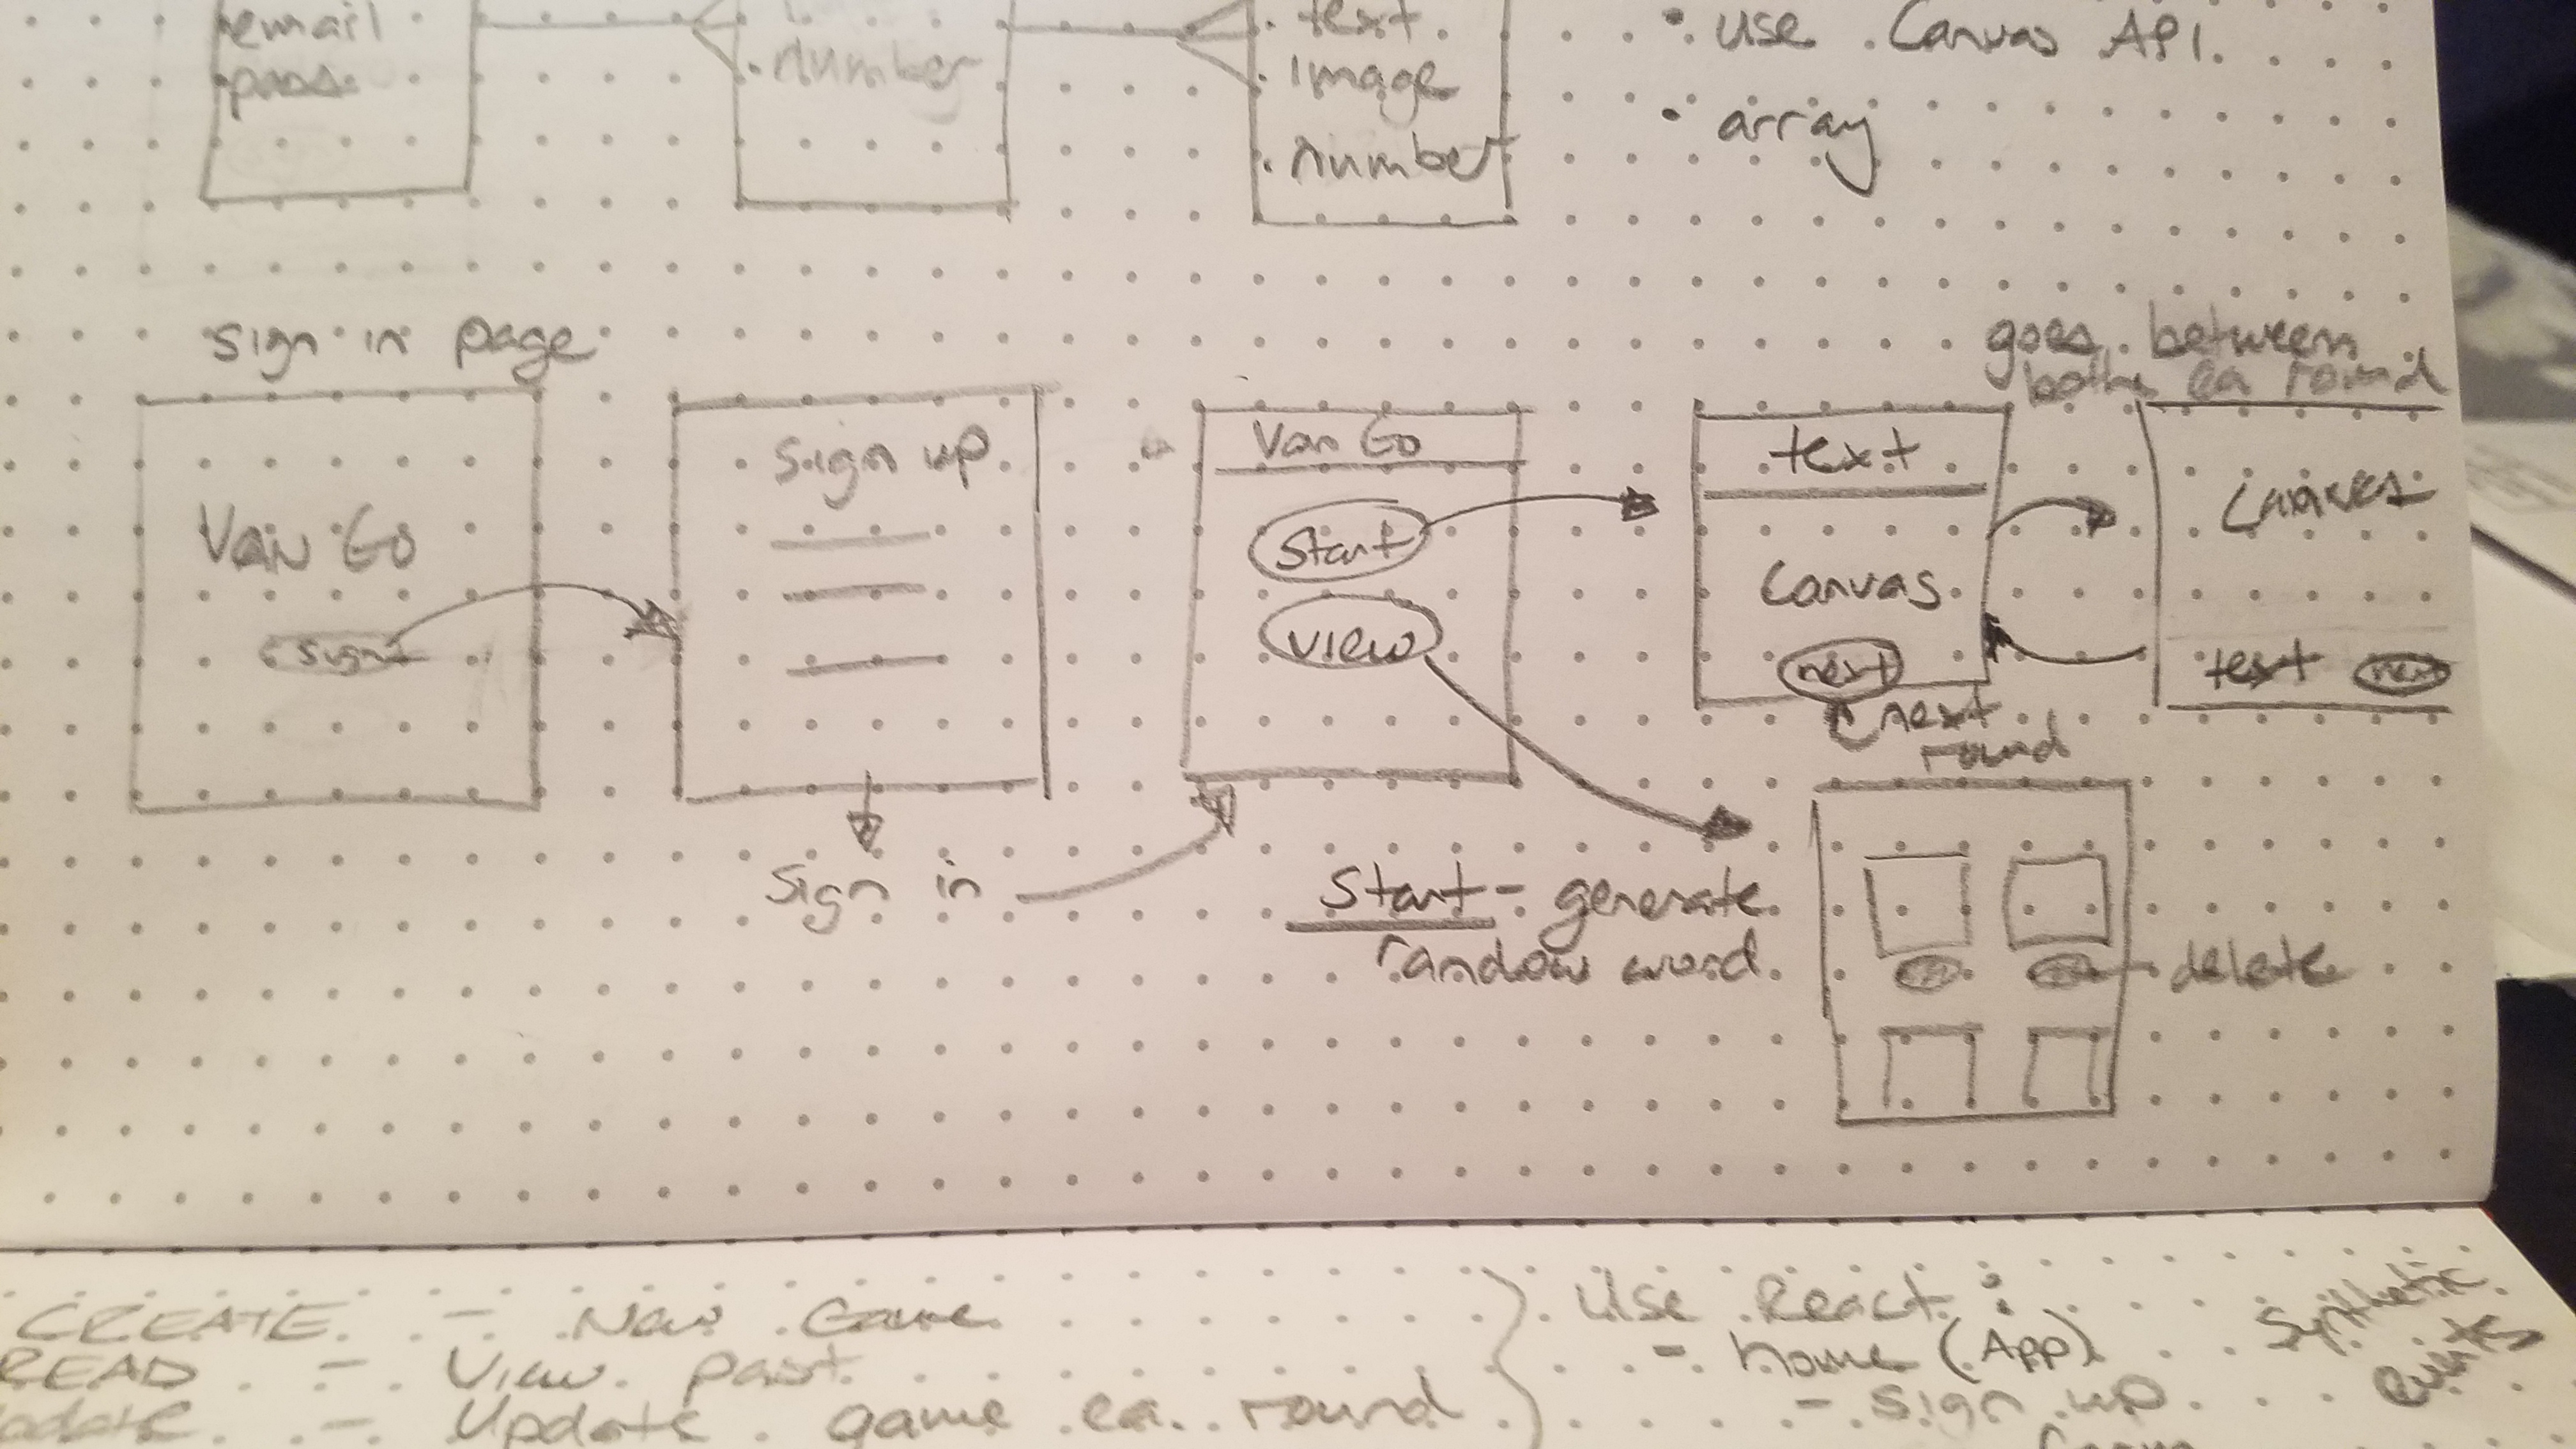 email
pass
number
text
image
number
use Canvas API.
array
sign in page
Van Go
sign
sign up
sign in
Van Go
start
view
text
Canvas
next
next
round
goes between
both ea round
Canvas
text next
Start - generate
random word.
delete
CREATE - New Game
READ - View past
update - Update game ea. round
Use React:
- home (App)
- sign up
Synthetic
events